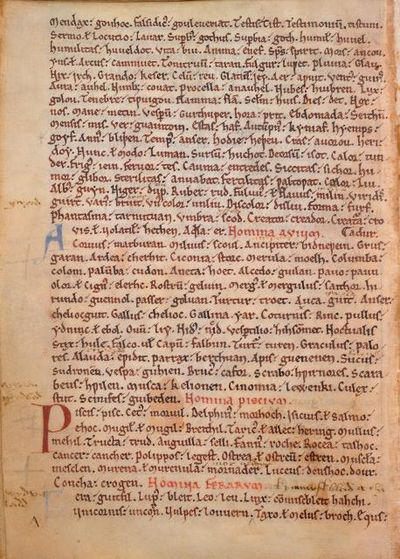 Mendax. gouhoc. falsidicus. gouleveriat. Testis. tist. Testimonium. tistum.
Sermo uel Locutio. lavar. Superbus. gothus. Supbia. goth. humil. huuel.
humilitas. huueldot. Vita. biu. Anima. enef. Spiritus. spirit. Mors. ancou.
uel Arcus. cammuet. Tonitruum. taran. fulgur. luhet. pluuia. glau.
Nix. irch. Grando. keser. Gelu. reu. Glacies. iey. Aer. ayuit. ventus. guins.
Aura. auhel. Nimbus. couat. procella. anauhel. Nubes. huibren. Lux.
golou. Tenebre. tipuigou. flamma. flam. Seculum. huis. Dies. det. Nox.
nos. Mane. metin. vesperum. gurthuper. hora. prit. Ebdomada. Seithun
Mensis. mis. ver. guaintoin. Estas. haf. Autumpnus. kyniaf. hyemps.
goyf. Annus. blipen. Tempus. anser. hodie. hepeu. Cras. auorou. heri.
doy. Nunc uel modo. Luman. Sursum. huchot. Deorsum. isot. Calor. tun
der. frigus. iein. feruor. tes. Cauma. entredes. Siccitas. sichor. hu
mor. glibor. Sterilitas. anuabat. fertilitas. Color. Liu.
Albus. guyn. Niger. dup. Ruber. rud. fuluus uel flauus. milin. viridis.
guirt. varius. bruit. Discolor. disliu. forma. furf.
Phantasma. tarnutuan. vmbra. scod. Creator. creador. Creatura. cro
Auis uel volatil. hethen. Aquila. er. Nomina avium. Cadur.
Coruus. marburan. Miluus. scoul. Ancipiter. bidnepein. Grus.
garan. Ardea. cherhit. Ciconia. store. Merula. moelh. Columba.
colom. palumba. cudon. Aneta. hoet. Alcedo. guilan. pauo. pauon
uel Cignus. elerhc. Rostrum. geluin. Mergus uel mergulus. sarthor. hi
rundo. guennol. passer. goluan. Turtur. troet. Auca. guit. Anser.
cheliocguit. Gallus. chelioc. Gallina. yar. Coturnix. Rinc. pullus.
ydnunc uel ebol. Ouum. uy. Nidus. nyd. vespertilio. hihsomet. Noctua.
hule. falco. uel Capus. falbun. Turdus. turen. Graculus. palo
res. Alauda. epidit. parrax. berthuan. Apis. guenenen. Fucus.
sudronen. vespa. guhien. Bruchus. cafor. Scrabo. hpirnores. Scara
beus. hpilen. Musca. kelionen. Cinomia. lewenki. Culex.
stut. Scinifes. guibeden. Nomina piscium.
Piscis. pisc. Cetus. moruil. Delphinus. morhoch. Isicius uel Salmo.
ehoc. Mugil uel Mugilus. Brethil. Taricus uel allec. hering. Mullus.
mehil. Tructa. trud. Anguilla. selli. Fannus. roche. Rocea. talhoc.
cancer. cancher. Polippos. legest. Ostrea uel ostreum. estren.
mesclen. Murena uel murenula. moruader. Luceus. denshoc. dour.
Concha. crogen. Nomina ferarum.
era. guithil. Lupus. bleit. Leo. leu. Linx. commiscblett hahchi.
Unicornus. uncorn. Vulpes. louuern. Taxo uel melus. broch.